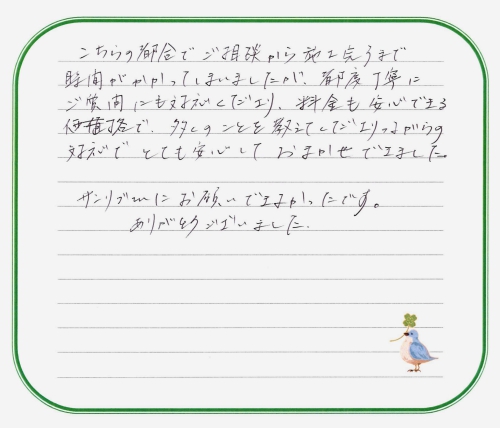 こちらの都合でご相談から施工完了まで
時間がかかってしまいましたが、都度丁寧に
ご質問にも対応くださり、料金も安心できる
価格で、多くのことを教えてくださりつつ
対応でとても安心して おまかせできました。
サンリブさんにお願いできてよかったです。
ありがとうございました。